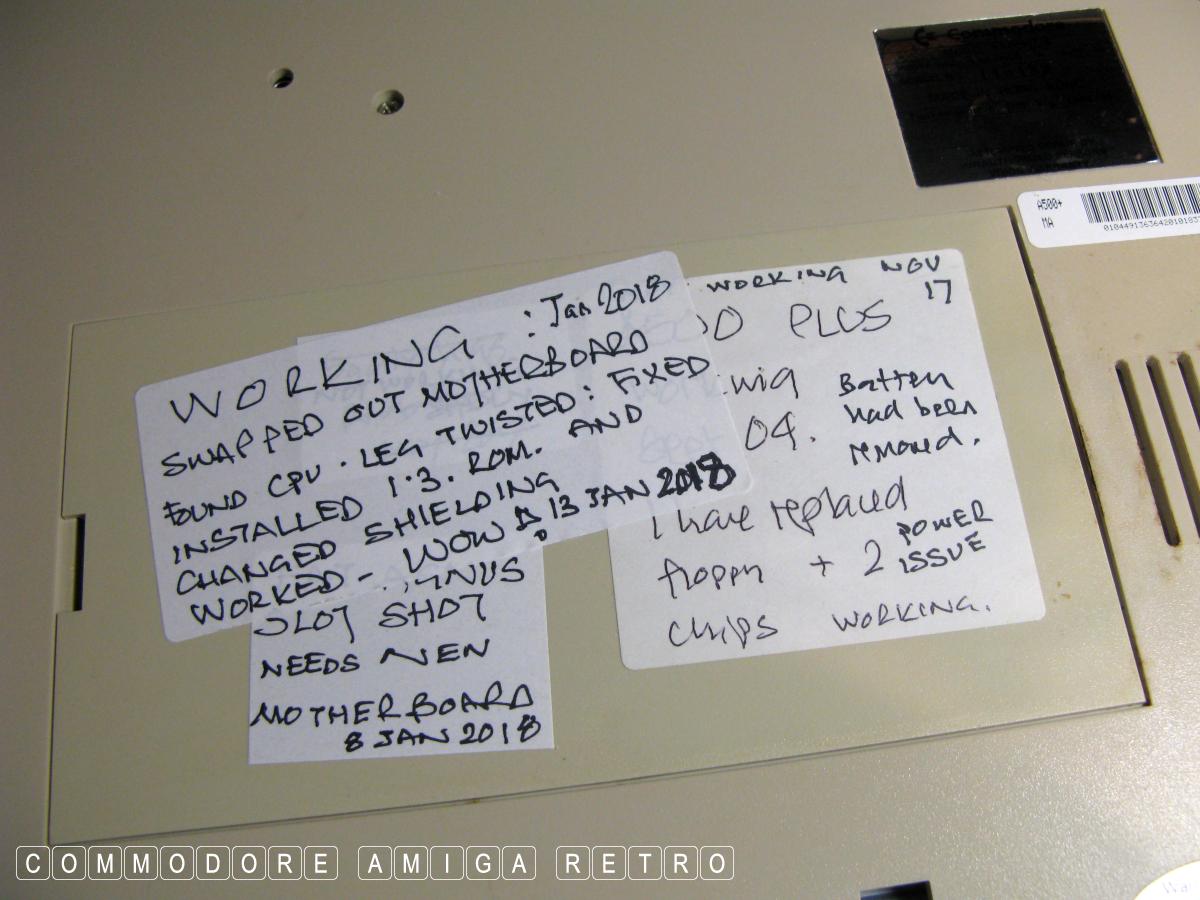 Commodore
A500+
MA
WORKING : Jan 2018
SWAPPED OUT MOTHERBOARD
FOUND CPU. LEG TWISTED: FIXED
INSTALLED 1.3. ROM. AND
CHANGED SHIELDING
WORKED - WOW 13 JAN 2018
SLOT SHOT
NEEDS NEW
MOTHERBOARD
8 JAN 2018
WORKING NOV
17
PLUS
Battery
had been
removed.
04.
I have replaced
floppy + 2 POWER
ISSUE
chips WORKING.
COMMODORE AMIGA RETRO